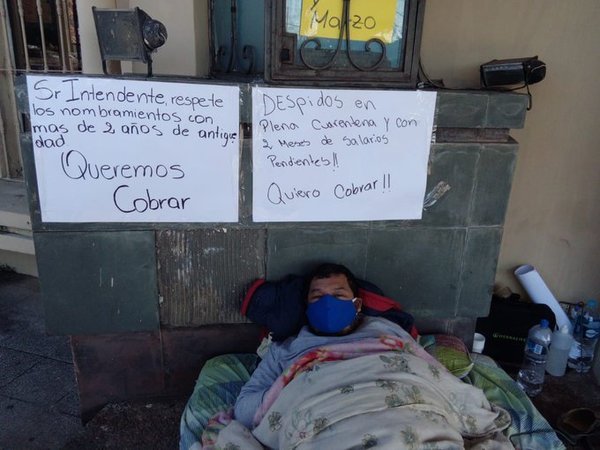 y
Marzo
Sr Intendente, respete
los nombramientos con
mas de 2 años de antigue
dad
Queremos
Cobrar
Despidos en
Plena Cuarentena y con
2 Meses de Salarios
Pendientes!!
Quiero Cobrar!!